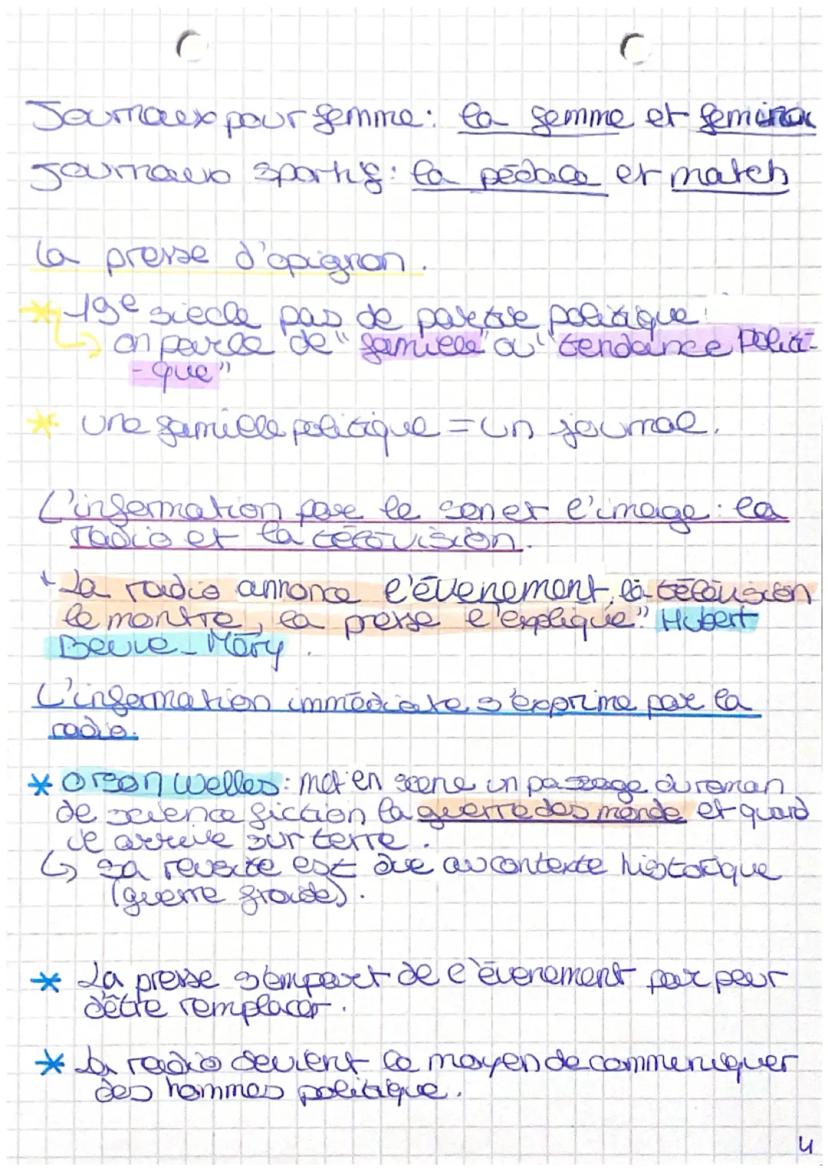 Journaux pour femme: la femme et femina
Journaux sportifs: la pédale et match
la presse d'opignon.
* 19e siècle pas de partie politique:
↳ on parle de "famille" ou "tendance politi-
-que"
* une famille politique = un journal.
L'information par le son et l'image: la
radio et la télévision.
"La radio annonce l'évenement, la télévision
le montre, la presse l'explique" Hubert
Beuve-Méry.
L'information immédiate s'exprime par la
radio.
* Orson Welles: met en scene un passage du roman
de science fiction la guerre des monde et quand
il arrive sur terre.
↳ sa reusite est due au contexte historique
(guerre froide).
* La presse s'empart de l'évenement par peur
dêtre remplacer.
* La radio devient le moyen de communiquer
des hommes politique.
4